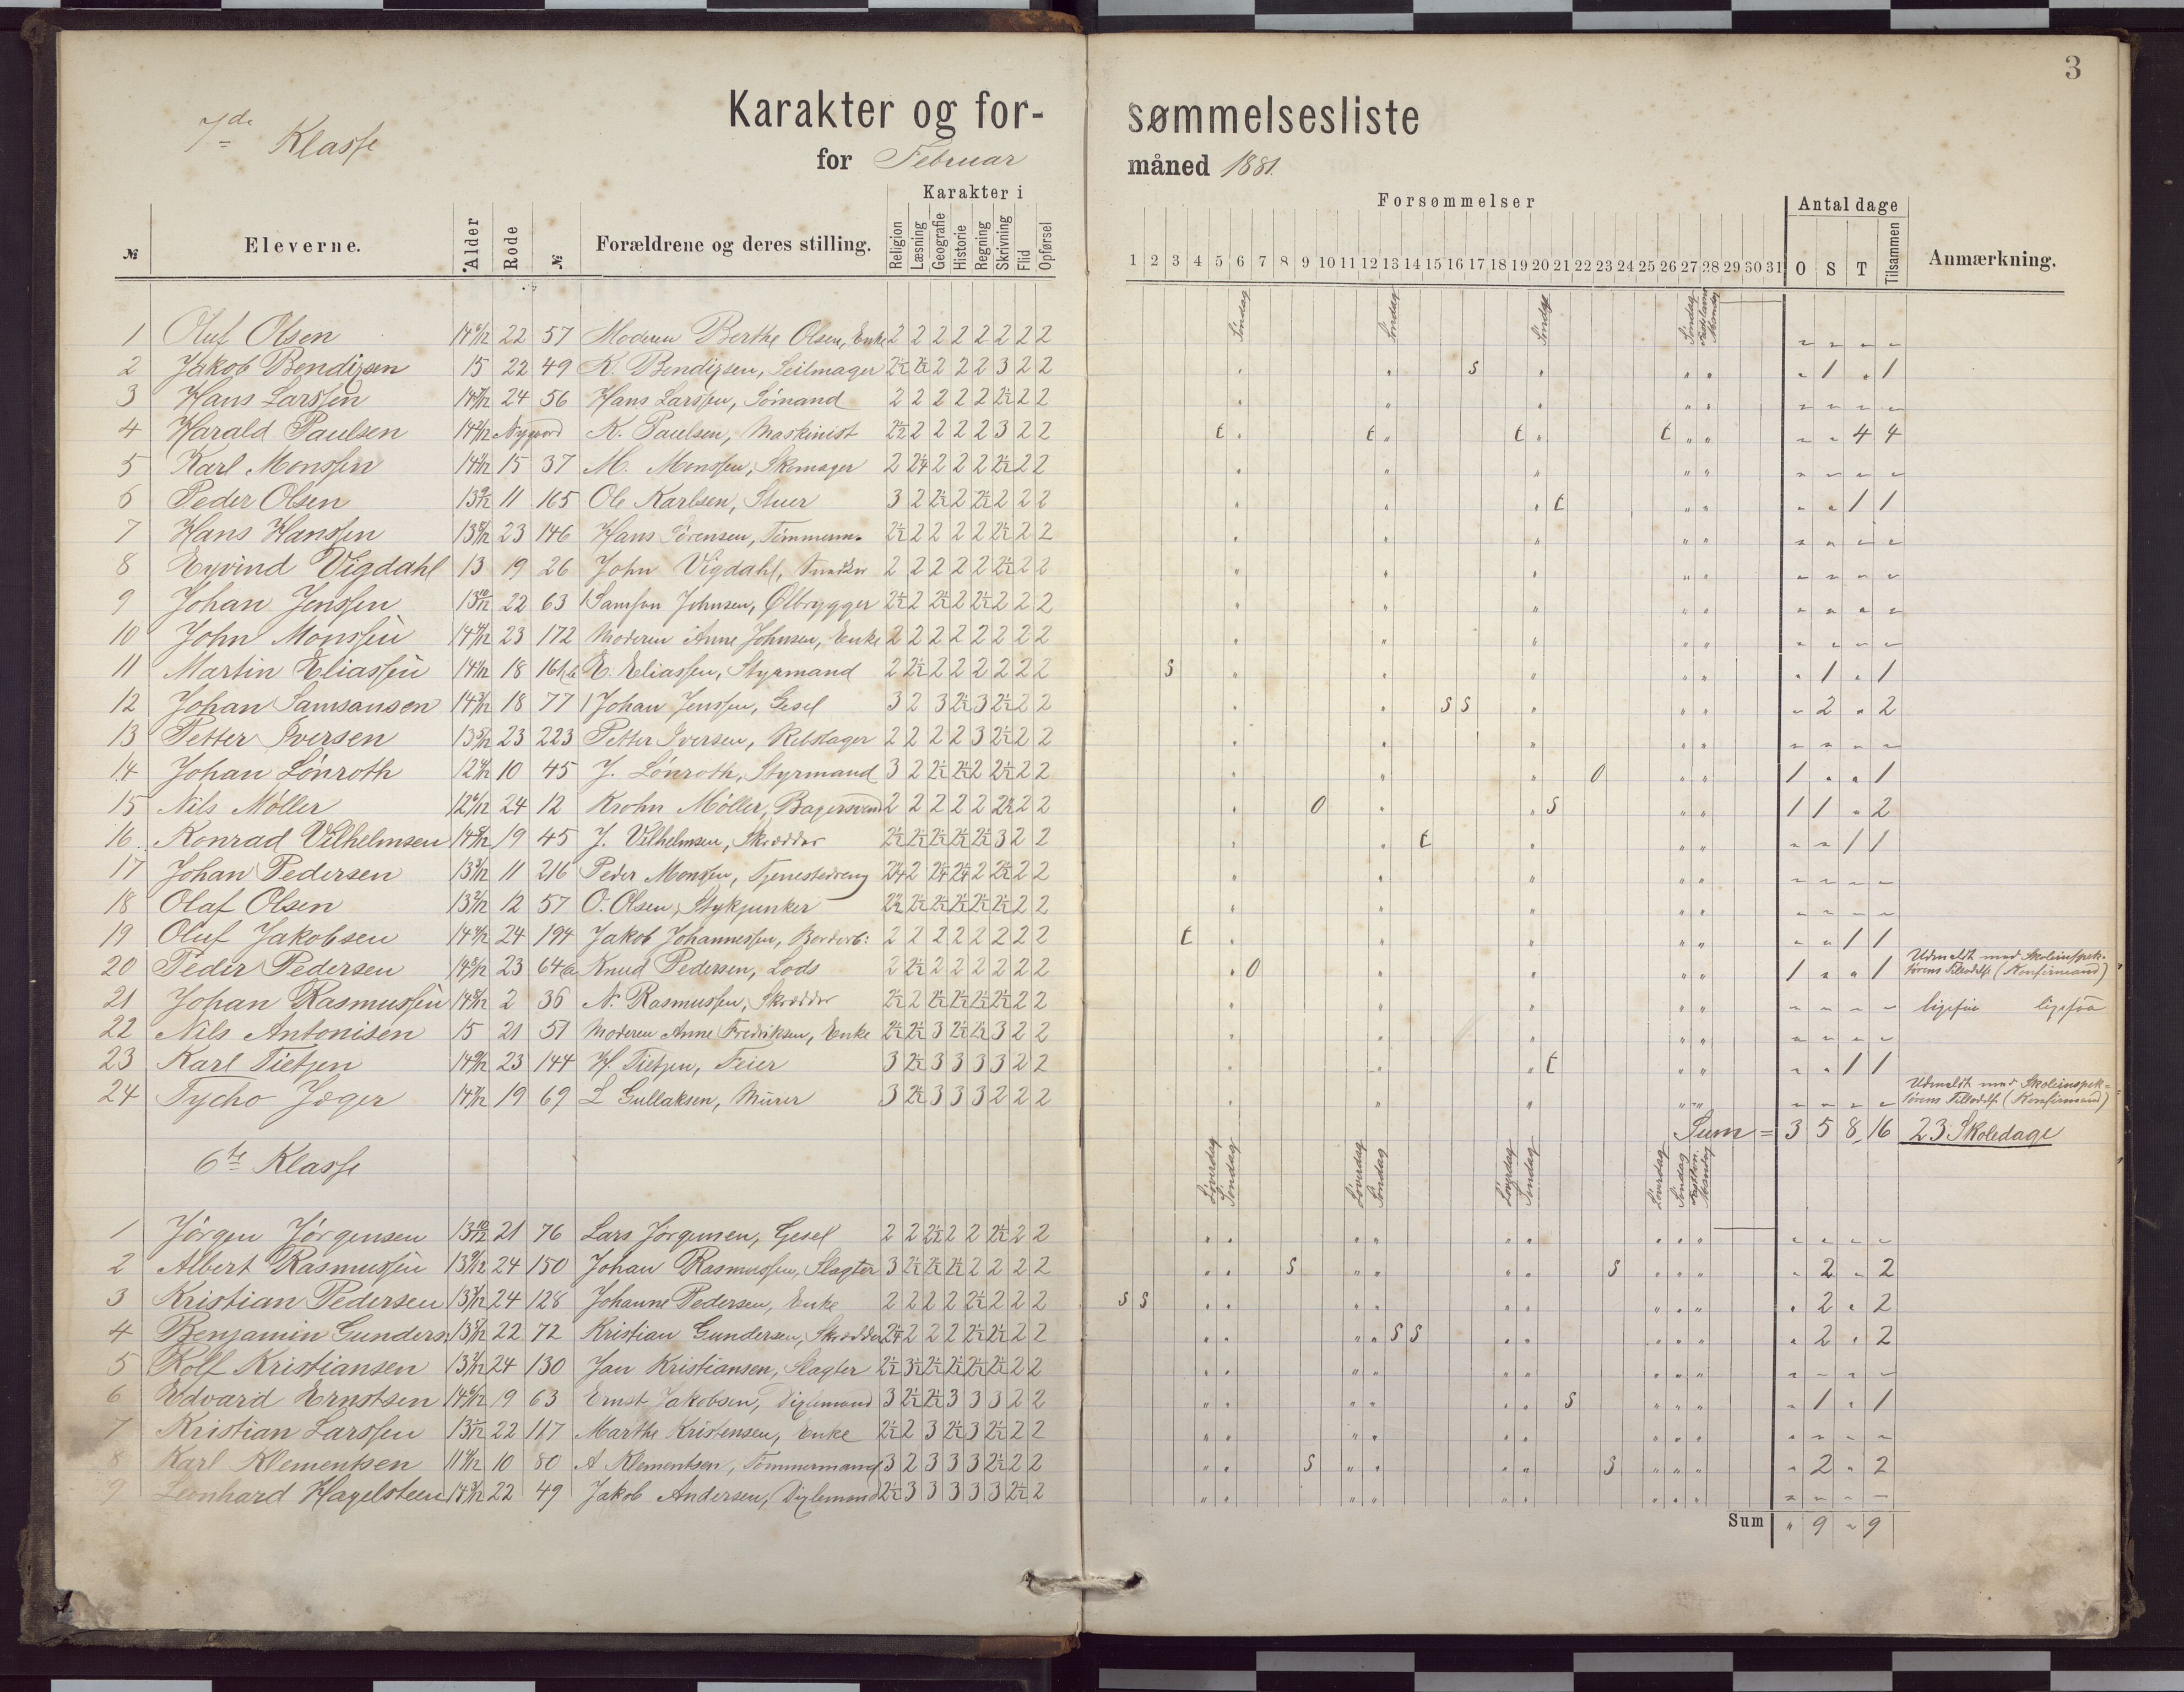 3
7de Klasse
Karakter og for-sømmelsesliste
for Februar måned 1881.
Karakter i Forsømmelser Antal dage
№ Eleverne. Alder Rode № Forældrene og deres stilling. Religion Læsning Geografie Historie Regning Skrivning Flid Opførsel 1 2 3 4 5 6 7 8 9 10 11 12 13 14 15 16 17 18 19 20 21 22 23 24 25 26 27 28 29 30 31 O S T Tilsammen Anmærkning.
Søndag Søndag Søndag Søndag Mandag
1 Oluf Olsen 22 57 Moderen Berthe Olsen, Enke 2 2 2 2 2 2 2 2 " " " "
2 Jakob Bendixen 15 22 49 K. Bendixsen, Seilmager 2½ 2½ 2 2 2 3 2 2 s " 1 " 1
3 Hans Larssen 24 56 Hans Larssen, Sömand 2 2 2 2 2 2½ 2 2 " " " "
4 Harald Paulsen Nygaard K. Paulsen, Maskinist 2½ 2 2 2 2 3 2 2 t t t t " " 4 4
5 Karl Monssen 15 37 M. Monssen, Skomager 2 2¼ 2 2 2 2½ 2 2 " " " "
6 Peder Olsen 11 165 Ole Karlsen, Stuer 3 2 2½ 2 2½ 2 2 2 t " " 1 1
7 Hans Hanssen 23 146 Hans Sörensen, Tömmerm. 2½ 2 2 2 2 2½ 2 2 " " " "
8 Eyvind Vigdahl 13 19 26 John Vigdahl, 2 2 2 2 2 2½ 2 2 " " " "
9 Johan Jenssen 13 10/12 22 63 Samson Johnsen, Ølbrygger 2½ 2 2½ 2 2½ 2 2 2 " " " "
10 John Monssen 23 172 Moderen Anne Johnsen, Enke 2 2 2 2 2 2 2 2 " " " "
11 Martin Eliassen 18 161b E. Eliassen, Styrmand 2 2½ 2 2 2 2 2 2 s " 1 " 1
12 Johan Samsonsen 18 77 Johan Jenssen, Gesel 3 2 3 2½ 3 2½ 2 2 s s " 2 " 2
13 Petter Iversen 23 223 Petter Iversen, Rebslager 2 2 2 2 3 2½ 2 2 " " " "
14 Johan Lönroth 10 45 J. Lönroth, Styrmand 3 2 2½ 2½ 2 2½ 2 2 0 1 " " 1
15 Nils Möller 24 12 Krohn Möller, Bagersvend 2 2 2 2 2 2½ 2 2 0 s 1 1 " 2
16 Konrad Vilhelmsen 19 45 J. Vilhelmsen, Skrædder 2½ 2½ 2½ 2½ 2½ 3 2 2 t " " 1 1
17 Johan Pedersen 11 216 Peder Monssen, Tjenestedreng 2¼ 2 2¼ 2¼ 2 2½ 2 2 " " " "
18 Olaf Olsen 12 57 O. Olsen, Stykjunker 2½ 2½ 2½ 2½ 2½ 2½ 2 2 " " " "
19 Oluf Jakobsen 24 194 Jakob Johannessen, 2 2 2 2 2 2 2 2 t " " 1 1
20 Peder Pedersen 23 64a Knud Pedersen, Lods 2 2½ 2 2 2 2 2 2 0 1 " " 1 Udmeldt med Skoleinspek-
törens Tilladelse (Konfirmand)
21 Johan Rasmussen 2 36 N. Rasmussen, Skrædder 2½ 2 2½ 2½ 2½ 2½ 2 2 " " " " ligesaa ligesaa
22 Nils Antonisen 15 21 51 Moderen Anne Fredriksen, Enke 2½ 2½ 3 2½ 2½ 3 2 2 " " " "
23 Karl Tietjen 23 144 H. Tietjen, Feier 3 2½ 3 3 3 3 2 2 t " " 1 1
24 Tycho Jæger 19 69 L Gullaksen, Murer 3 2½ 3 3 3 2 2 2 " " " " Udmeldt med Skoleinspek-
törens Tilladelse (Konfirmand)
Sum = 3 5 8 16 23 Skoledage
6te Klasse Löverdag Søndag Löverdag Søndag Löverdag Søndag Löverdag Søndag Mandag
1 Jörgen Jörgensen 13 10/12 21 76 Lars Jörgensen, Gesel 2 2 2½ 2 2 2½ 2 2 " " " "
2 Albert Rasmussen 24 150 Johan Rasmussen, Slagter 3 2½ 2½ 2½ 2 2 2 2 s s " 2 " 2
3 Kristian Pedersen 24 128 Johanne Pedersen, Enke 2 2 2 2 2½ 2 2 2 s s " 2 " 2
4 Benjamin Gunders: 22 72 Kristian Gundersen, Skrædder 2¼ 2 2 2 2½ 2½ 2 2 s s " 2 " 2
5 Rolf Kristiansen 24 130 Jan Kristiansen, Slagter 2½ 3½ 2½ 2½ 2½ 2½ 2 2 " " " "
6 Edvard Ernstsen 19 63 Ernst Jakobsen, Dixlemand 3 2½ 2½ 3 3 3 2 2 s " 1 " 1
7 Kristian Larssen 22 117 Marthe Kristensen, Enke 2½ 2 3 2½ 3 2½ 2 2 " " " "
8 Karl Klementsen 10 80 A Klementsen, Tömmermand 3 2 3 3 3 2½ 2 2 s s " 2 " 2
9 Leonhard Hagelsteen 22 49 Jakob Andersen, Dixlemand 2½ 3 3 3 3 3 2½ 2 " " " "
Sum " 9 " 9